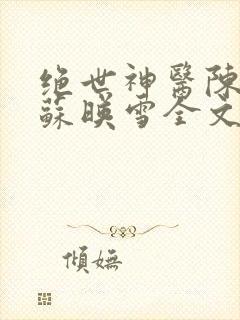 绝世神醫陳
蘇暎雪全文
傾嫵